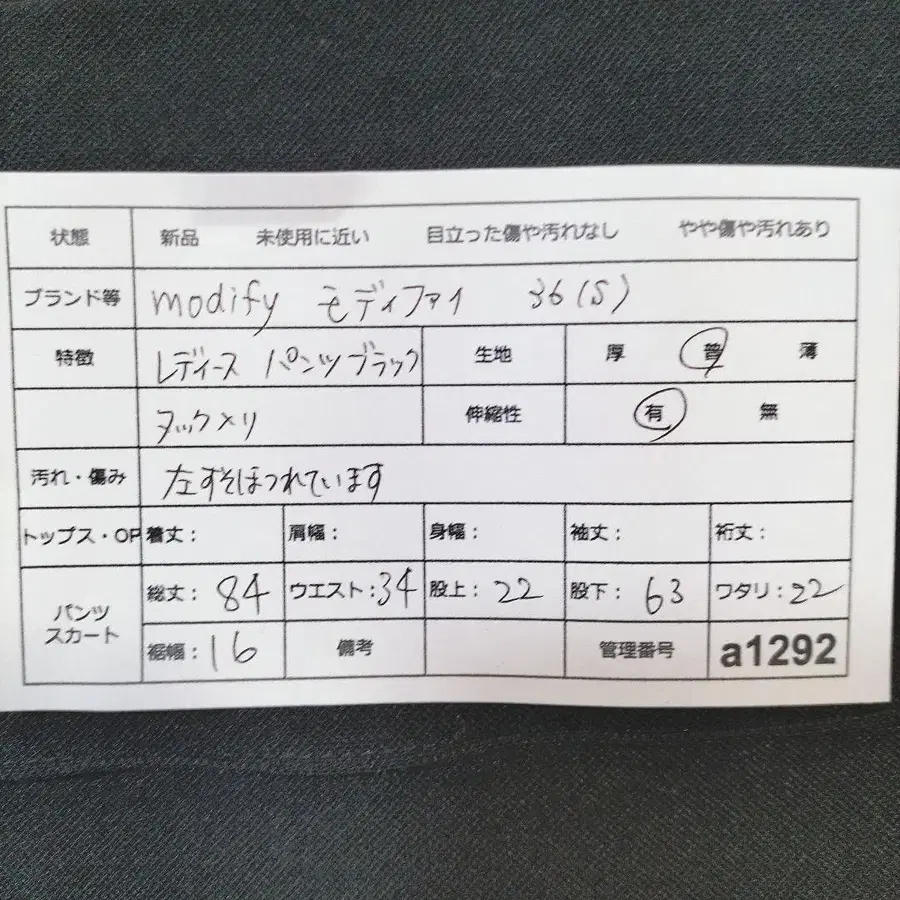 状態 新品 未使用に近い 目立った傷や汚れなし やや傷や汚れあり
ブランド等 modify モディファイ 36(S)
特徴 レディース パンツ ブラック 生地 厚 普 薄
タックメリ 伸縮性 有 無
汚れ・傷み 左すそほつれています
トップス・OP 着丈: 肩幅: 身幅: 袖丈: 裄丈:
パンツ スカート 総丈: 84 ウエスト:34 股上: 22 股下: 63 ワタリ:22
裾幅:16 備考 管理番号 a1292